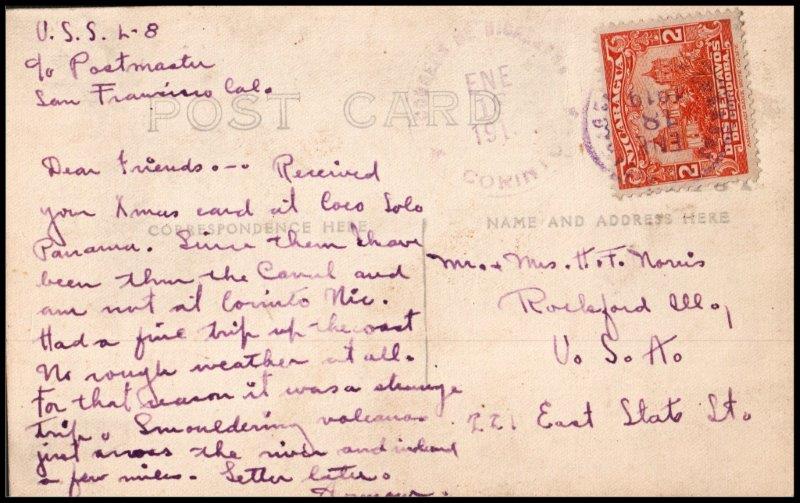 U.S.S. L-8
c/o Postmaster
San Francisco Cal.
POST CARD
CORREOS DE NICARAGUA
ENE
191
CORINTO
NICARAGUA
2
2
DOS CENTAVOS
DE CORDOBA
ENE
18
1919
Dear Friends.-- Received
your Xmas card at Coco Solo
CORRESPONDENCE HERE
NAME AND ADDRESS HERE
Panama. Since them I have
been thru the Canal and
am not at Corinto Nic.
Had a fine trip up the coast
No rough weather at all.
For that reason it was a strange
trip. Smouldering volcano
just across the river and inland
a few miles. Letter later.
Mr. & Mrs. H.F. Norris
Rockford Ill.,
U.S.A.
221 East State St.